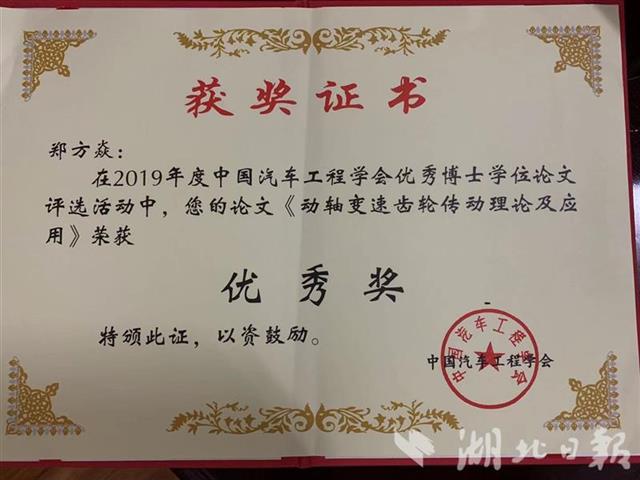 获奖证书
郑方焱：
在2019年度中国汽车工程学会优秀博士学位论文
评选活动中，您的论文《动轴变速齿轮传动理论及应
用》荣获
优秀奖
特颁此证，以资鼓励。
中国汽车工程学会
中国汽车工程学会
湖北日报